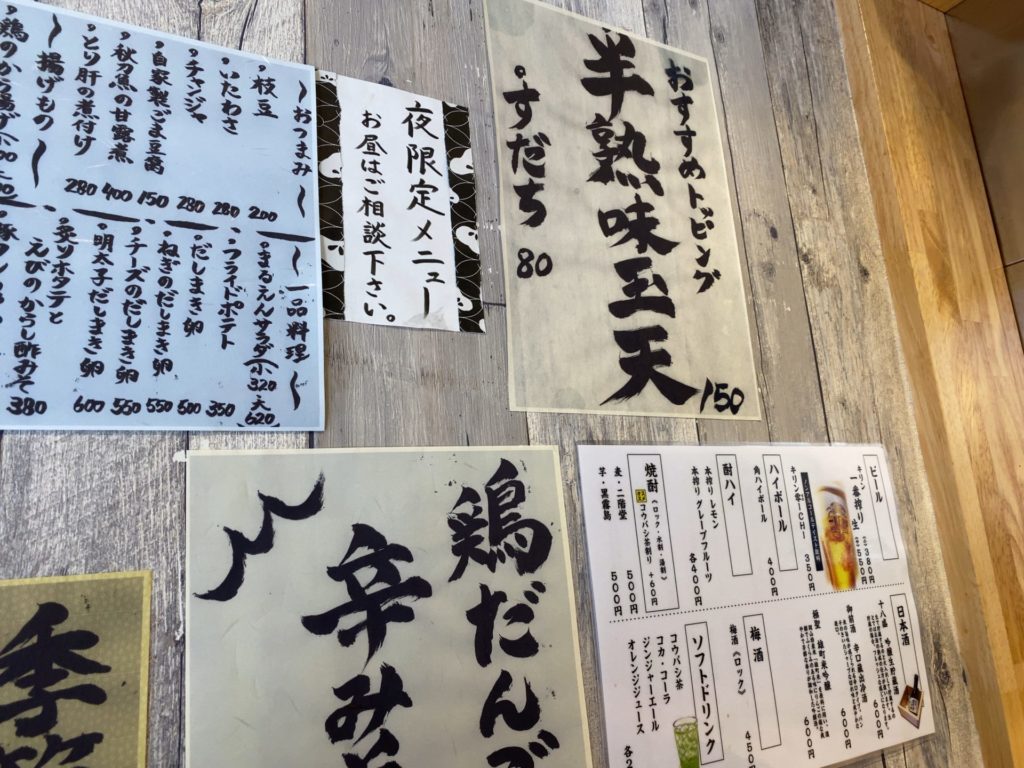 おすすめトッピング
半熟味玉天 150
すだち 80
夜限定メニュー
お昼はご相談下さい。
〜おつまみ〜
枝豆 200
いたわさ 280
チャンジャ 280
自家製ごま豆腐 150
秋刀魚の甘露煮 400
とり肝の煮付け 280
〜揚げもの〜
〜一品料理〜
まるえんサラダ(小320 大620)
フライドポテト 350
だしまき卵 500
ねぎのだしまき卵 550
チーズのだしまき卵 550
明太子だしまき卵 600
炙りホタテと
えびのからし酢みそ 380
鶏だんご
辛み
季節
ビール
キリン 一番搾り 生
380円
550円
キリン 零ICHI 350円
ハイボール
角ハイボール 400円
酎ハイ
本搾り レモン
本搾り グレープフルーツ
各400円
焼酎 (ロック・水割・湯割)
コウバシ茶割り +60円
麦・二階堂 500円
芋・黒霧島 500円
日本酒
十八盛 吟醸生貯蔵酒 600円
御前酒 辛口 600円
極聖 雄町米吟醸 600円
梅酒
梅酒(ロック) 450円
ソフトドリンク
コウバシ茶
コカ・コーラ
ジンジャーエール
オレンジジュース